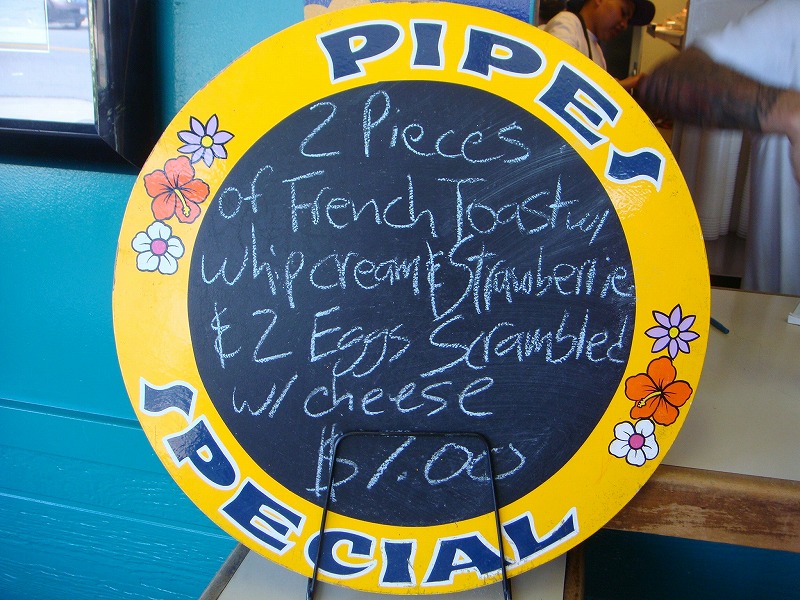 PIPES
2 Pieces
of French Toast w/
whip cream & Strawberrie
& 2 Eggs Scrambled
w/ cheese
SPECIAL